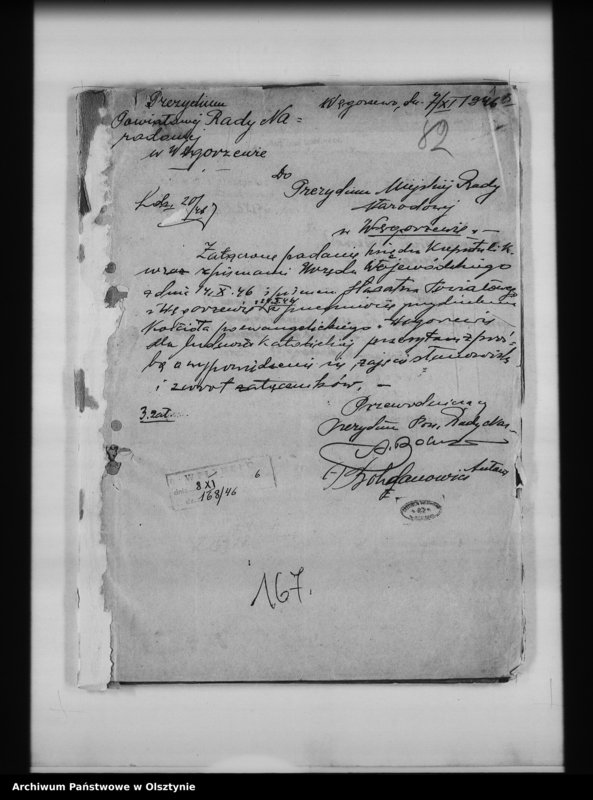 Prezydium
Powiatowej Rady Na=
rodowej
w Węgorzewie
Węgorzewo, dn. 7/XI 1946
82
Do
Prezydium Miejskiej Rady
Narodowej
w Węgorzewie. -
L.dz. 20/46
Załączone podanie księdza
wraz z pismami Urzędu Wojewódzkiego
z dnia X.46 i pismem Powiatowego
w Węgorzewie w przydzielenia
Kościoła poewangelickiego w Węgorzewie
dla ludności katolickiej przesyłam z proś=
bą o wypowiedzenie się, zajęcie stanowiska
i zwrot załączników. -
3 zał.
Przewodniczący
Prezydium Pow. Rady Nar.
Bohdanowicz Antoni
8 XI
168/46
6
167.
Archiwum Państwowe w Olsztynie